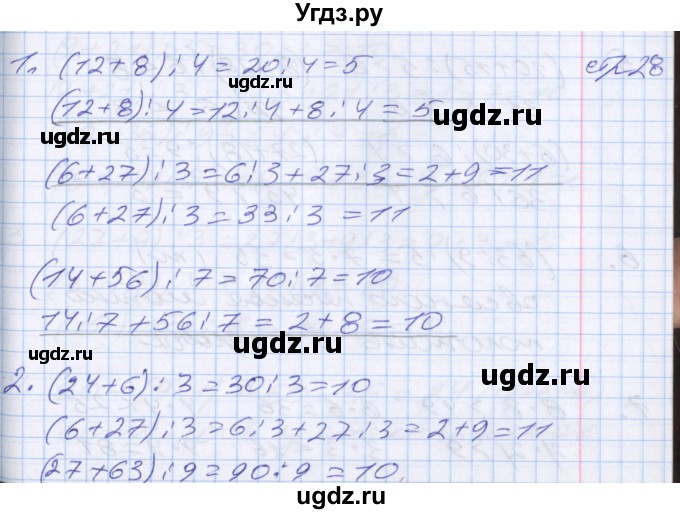 Угдз.ру
стр28
1. (12+8):4=20:4=5
(12+8):4=12:4+8:4=5
(6+27):3=6:3+27:3=2+9=11
(6+27):3=33:3=11
(14+56):7=70:7=10
14:7+56:7=2+8=10
2. (24+6):3=30:3=10
(6+27):3=6:3+27:3=2+9=11
(27+63):9=90:9=10.
ugdz.ru
ugdz.ru
ugdz.ru
ugdz.ru
ugdz.ru
ugdz.ru
ugdz.ru
ugdz.ru
ugdz.ru